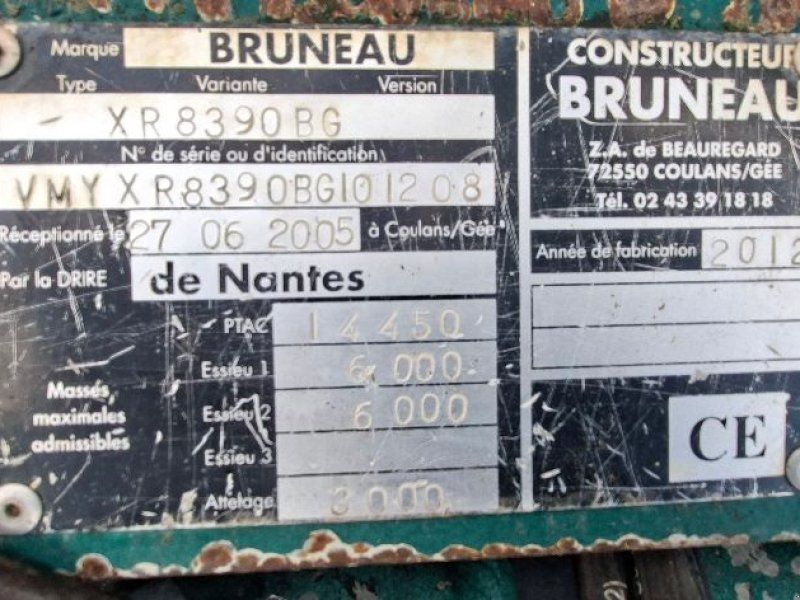 Marque BRUNEAU
Type Variante Version
- XR8390BG
N° de série ou d'identification
VMYXR8390BG101208
Réceptionné le 27 06 2005 à Coulans/Gée
Par la DRIRE de Nantes
PTAC 14450
Essieu 1 6 000
Masses maximales admissibles
Essieu 2 6 000
Essieu 3
Attelage 3000
CONSTRUCTEUR
BRUNEAU
Z.A. de BEAUREGARD
72550 COULANS/GÉE
Tél. 02 43 39 18 18
Année de fabrication 2012
CE